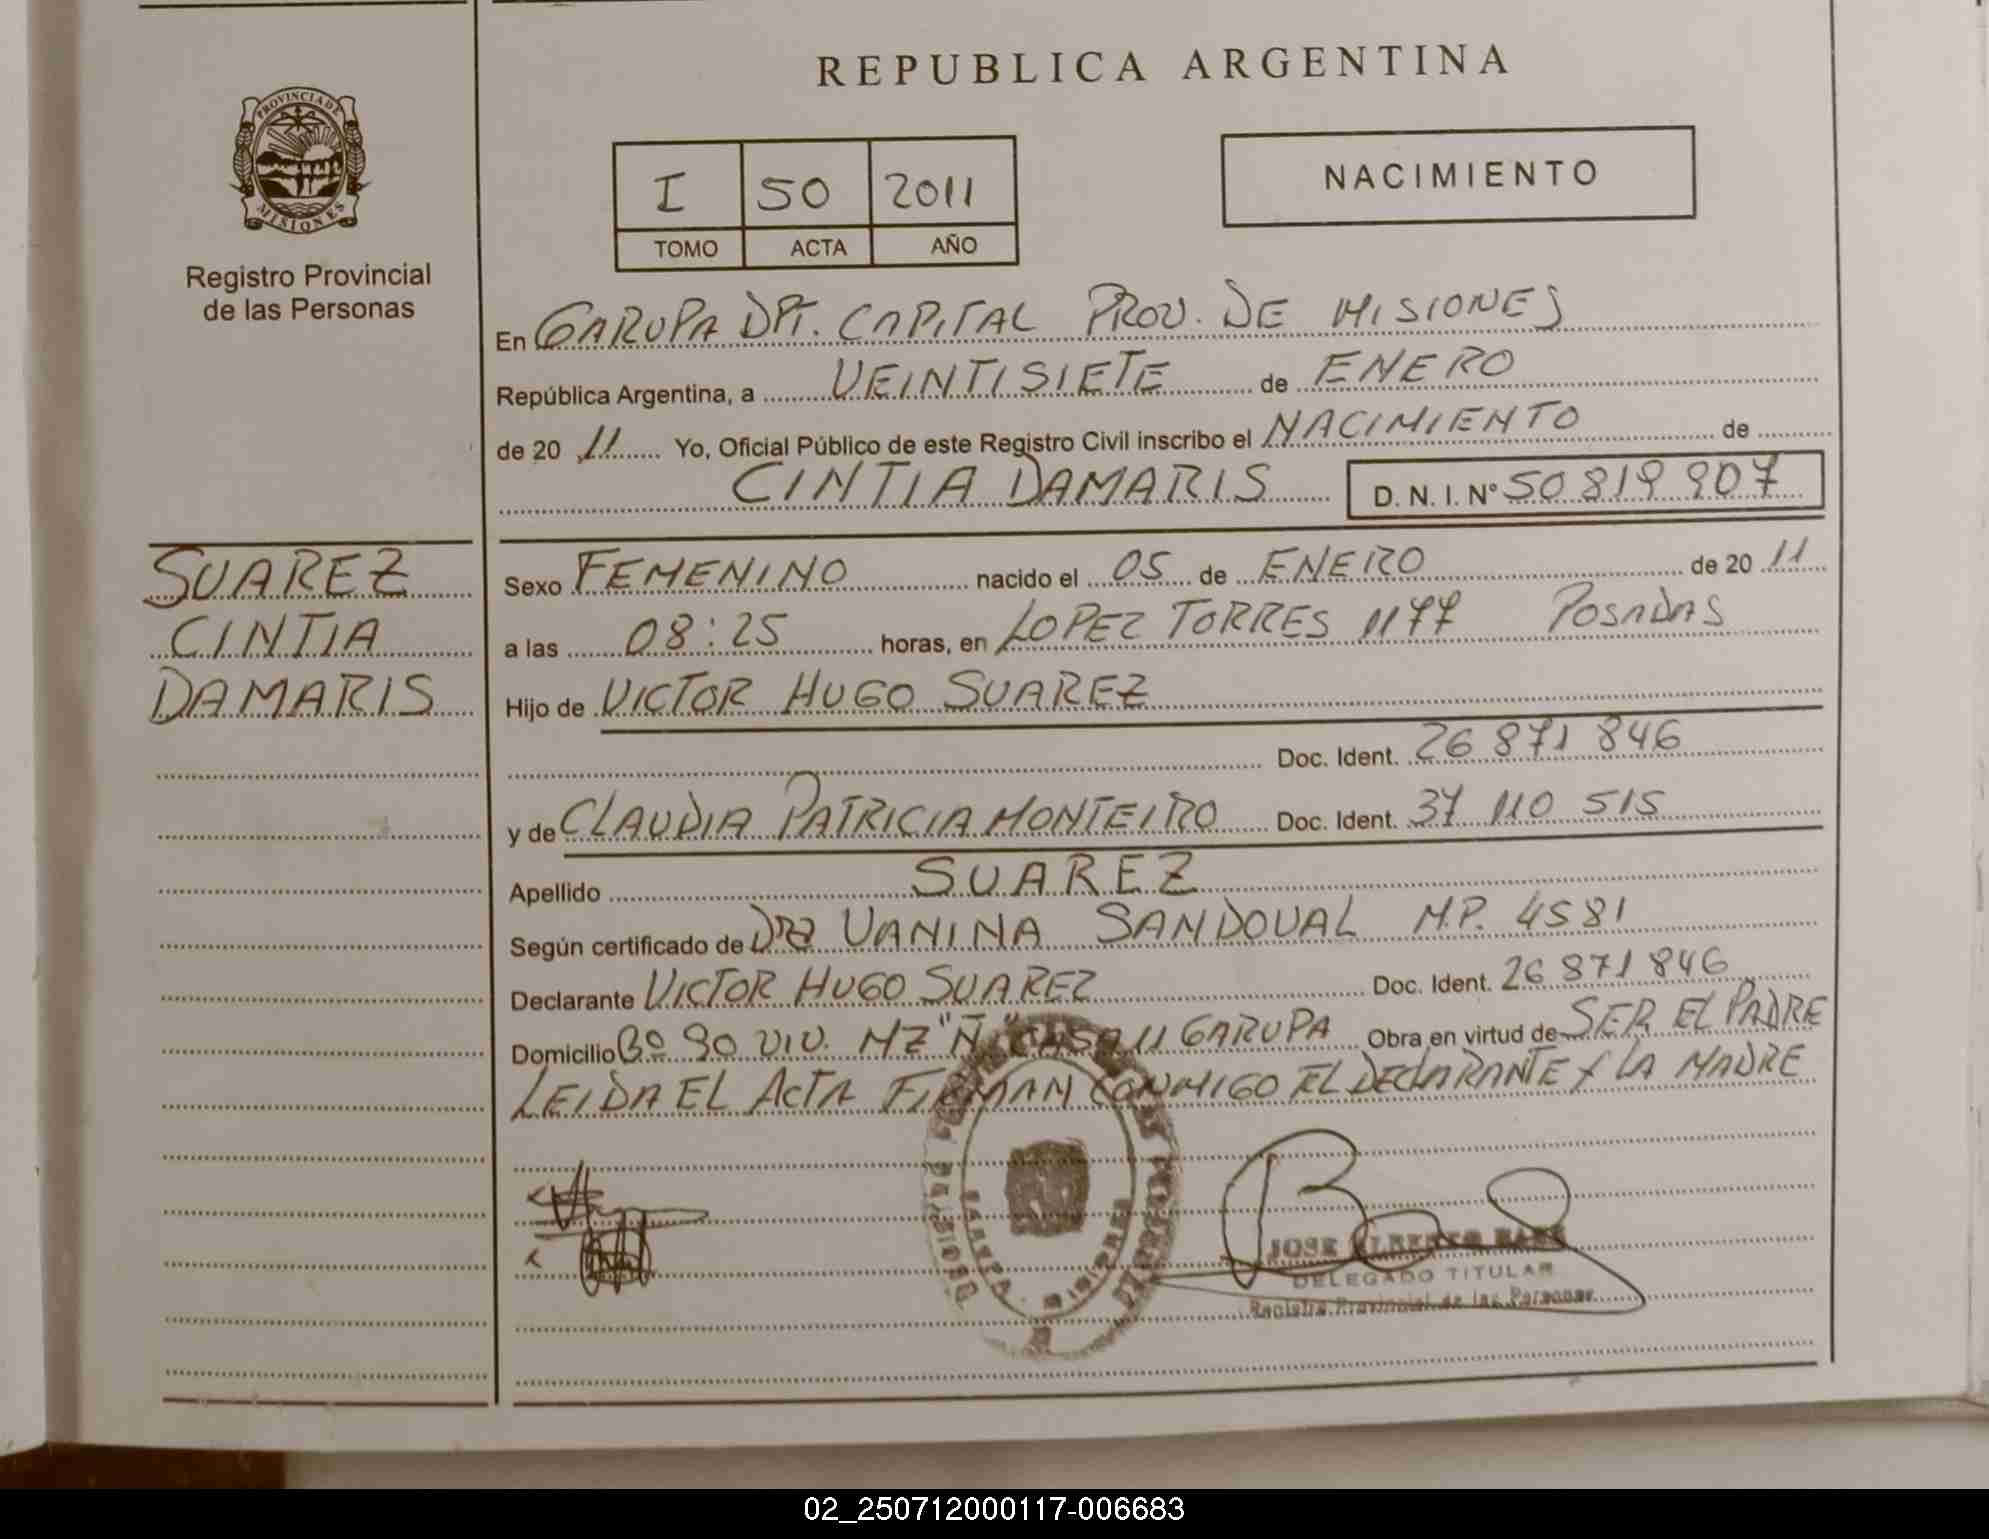 REPUBLICA ARGENTINA
PROVINCIA DE
MISIONES
Registro Provincial
de las Personas
I 50 2011
TOMO ACTA AÑO
NACIMIENTO
En GARUPA DPT. CAPITAL PROV. DE MISIONES
República Argentina, a VEINTISIETE de ENERO
de 20 11 Yo, Oficial Público de este Registro Civil inscribo el NACIMIENTO de
CINTIA DAMARIS D. N. I. Nº 50 819 907
SUAREZ
CINTIA
DAMARIS
Sexo FEMENINO nacido el 05 de ENERO de 20 11
a las 08:25 horas, en LOPEZ TORRES 1177 POSADAS
Hijo de VICTOR HUGO SUAREZ
Doc. Ident. 26 871 846
y de CLAUDIA PATRICIA MONTEIRO Doc. Ident. 37 110 515
Apellido SUAREZ
Según certificado de Dra VANINA SANDOVAL M.P. 4581
Declarante VICTOR HUGO SUAREZ Doc. Ident. 26 871 846
Domicilio Bº 90 VIV. MZ "Ñ" CASA 11 GARUPA Obra en virtud de SER EL PADRE
LEIDA EL ACTA FIRMAN CONMIGO EL DECLARANTE Y LA MADRE
JOSE ALBERTO
DELEGADO TITULAR
Registro Provincial de las Personas
02_250712000117-006683